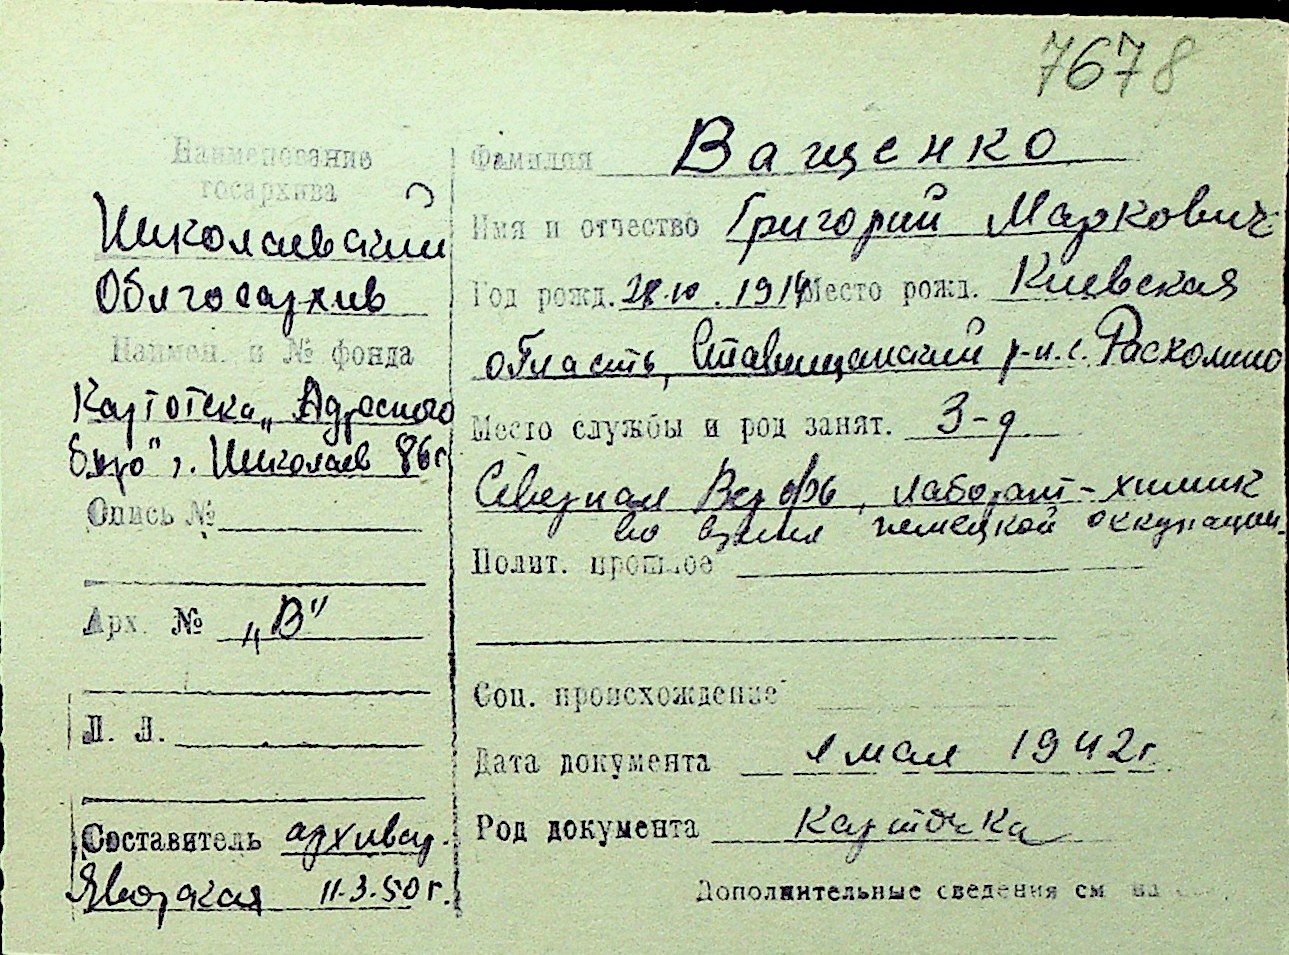 7678
Наименование
госархива
Николаевский
Облгосархив
Наимен. и № фонда
Картотека „Адресного
бюро" г. Николаев 86г
Опись №
Арх. № „В"
Л. Л.
Составитель архивар.
Яворская 11.3.50 г.
Фамилия Ващенко
Имя и отчество Григорий Маркович
Год рожд. 10. 1914 Место рожд. Киевская
область, Ставищанский р-н. с.
Место службы и род занят. З-д
Северная Верфь, лаборант-химик
во время немецкой оккупации.
Полит. прошлое
Соц. происхождение
Дата документа мая 1942г.
Род документа карточка
Дополнительные сведения см на